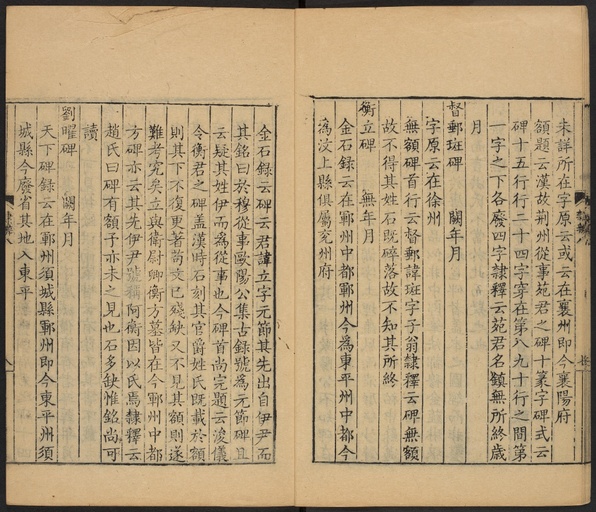 未詳所在字原云或云在襄州即今襄陽府
額題云漢故荊州從事苑君之碑十篆字碑式云
碑十五行行二十四字穿在第八九十行之間第
一字之下各廢四字隸釋云苑君名鎮無所終歲
月
督郵斑碑 闕年月
字原云在徐州
無額碑首行云督郵諱斑字子翁隸釋云碑無額
故不得其姓石既碎落故不知其所終
衡立碑 無年月
金石錄云在鄆州中都鄆州今為東平州中都今
為汶上縣俱屬兖州府
金石錄云碑云君諱立字元節其先出自伊尹而
其銘曰於穆從事歐陽公集古錄號為元節碑且
云疑其姓伊而為從事也今碑首尚完題云浚儀
令衡君之碑盖漢時石刻其官爵姓氏既載於額
則其下不復更著茍文已殘缺又不見其額則遂
難考究矣立與衛尉卿衡方墓皆在今鄆州中都
方碑亦云其先伊尹號稱阿衡因以氏焉隸釋云
趙氏曰碑有額子亦未之見也石多缺惟銘尚可
讀
劉曜碑 闕年月
天下碑錄云在鄆州須城縣鄆州即今東平州須
城縣今廢省其地入東平